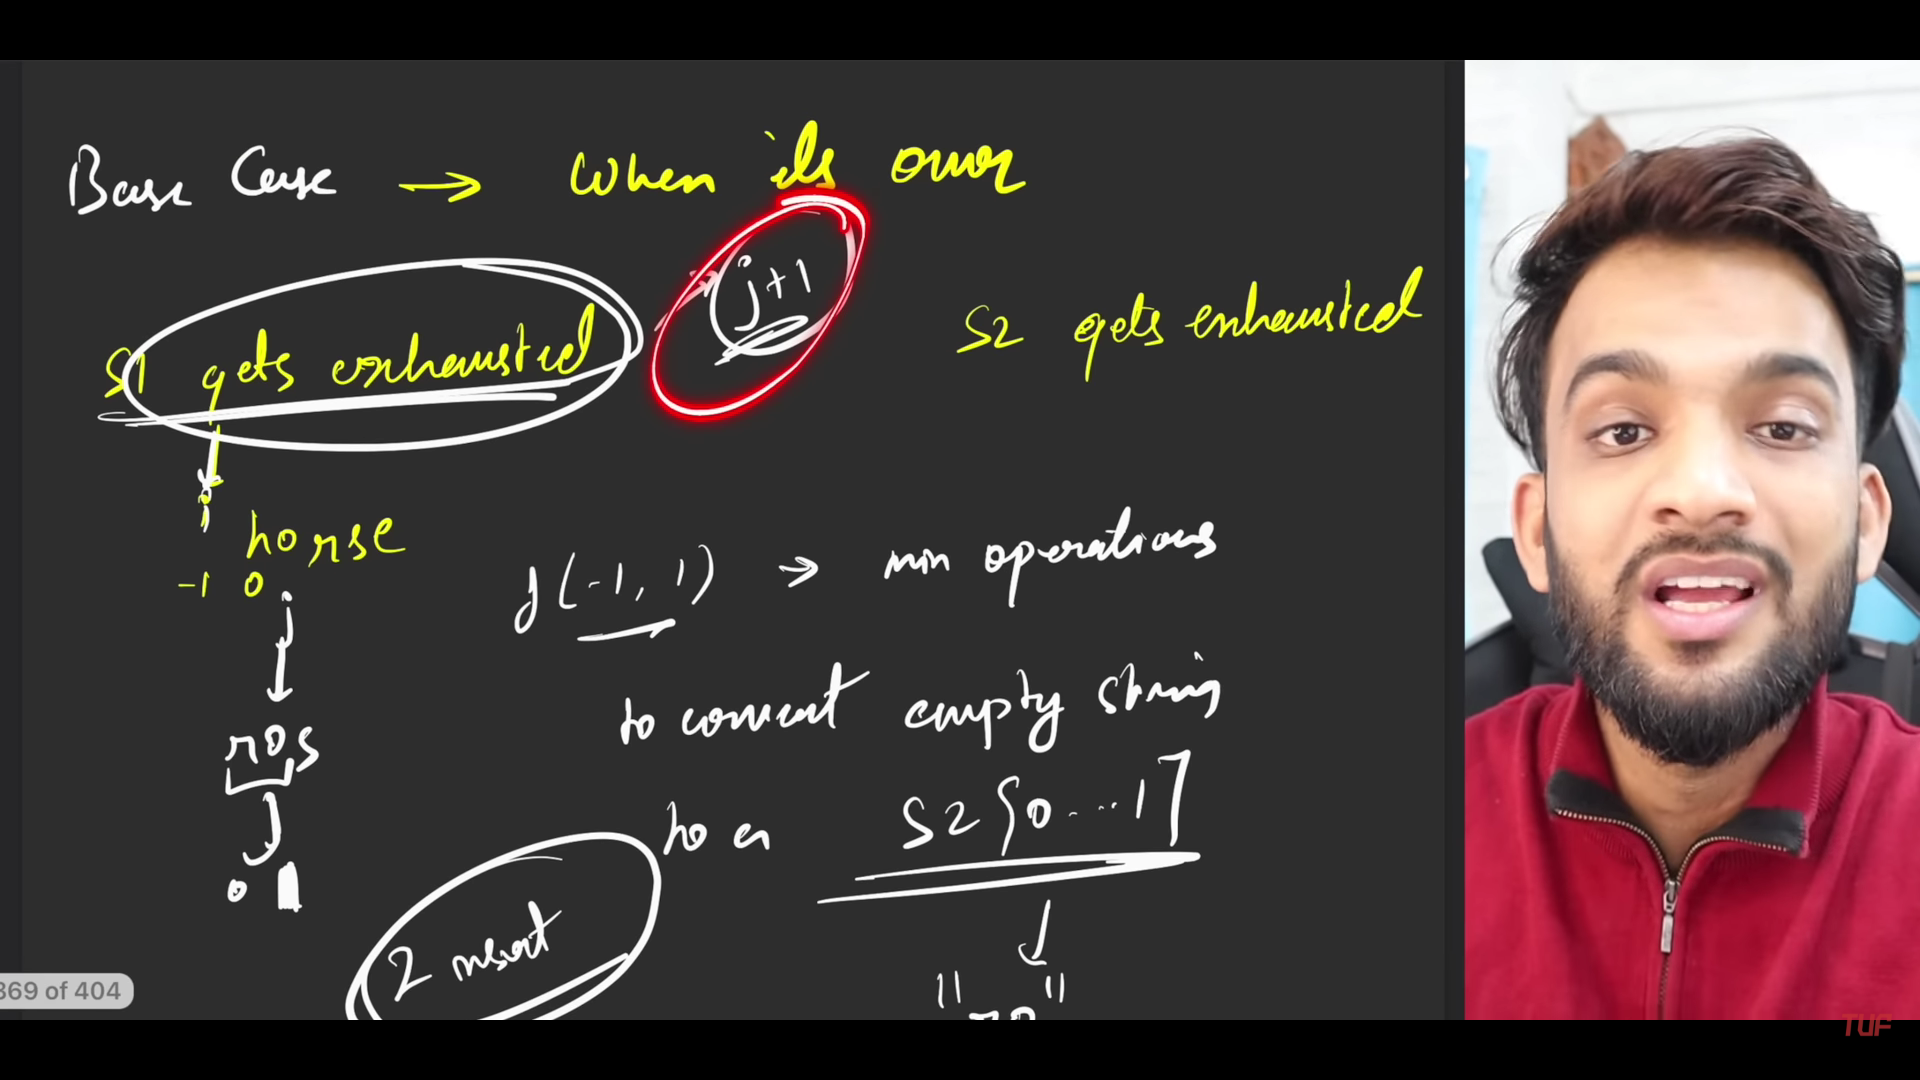 Base Case → When its over
S1 gets exhausted j+1 S2 gets exhausted
i
horse
-1 0
j
f(-1, 1) → min operations
to convert empty string
ros
to a S2[0...1]
j
0 1
2 insert
"ro"
369 of 404
TUF